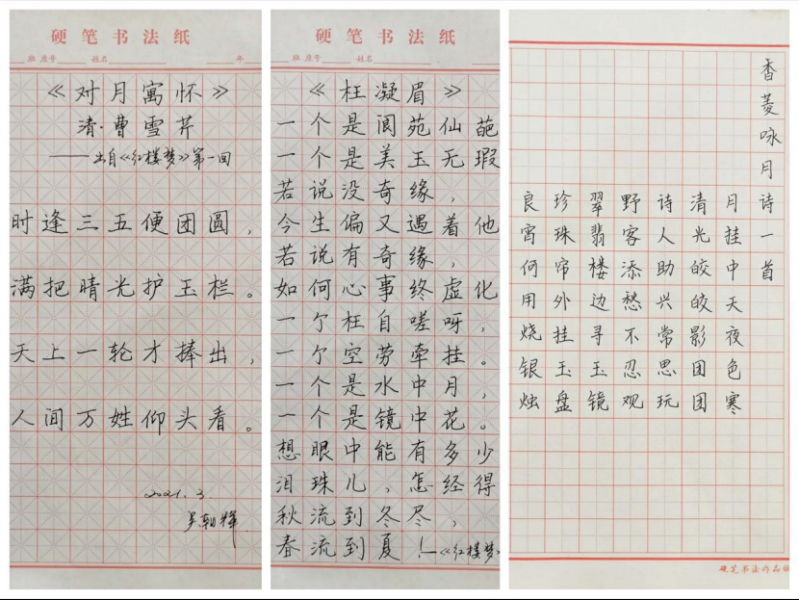 硬笔书法纸
班 座号 姓名 年
《对月寓怀》
清·曹雪芹
——出自《红楼梦》第一回
时逢三五便团圆，
满把晴光护玉栏。
天上一轮才捧出，
人间万姓仰头看。
2021.3
硬笔书法纸
班 座号 姓名
《枉凝眉》
一个是阆苑仙葩
一个是美玉无瑕
若说没奇缘，
今生偏又遇着他
若说有奇缘，
如何心事终虚化
一个枉自嗟呀，
一个空劳牵挂。
一个是水中月，
一个是镜中花。
想眼中能有多少
泪珠儿，怎经得
秋流到冬尽，
春流到夏！—《红楼梦》
香菱咏月诗一首
月挂中天夜色寒
清光皎皎影团团
诗人助兴常思玩
野客添愁不忍观
翠翡楼边寻玉镜
珍珠帘外挂玉盘
良宵何用烧银烛
硬笔书法作品